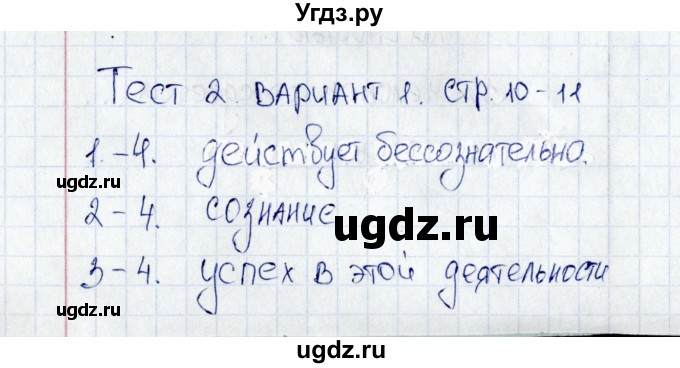 Угдз.ру
Тест 2. ВАРИАНТ 1. стр. 10-11
1.-4. действует бессознательно.
угдз.ru
2-4. сознание
угдз.ru
угдз.ru
3-4. успех в этой деятельности
угдз.ru